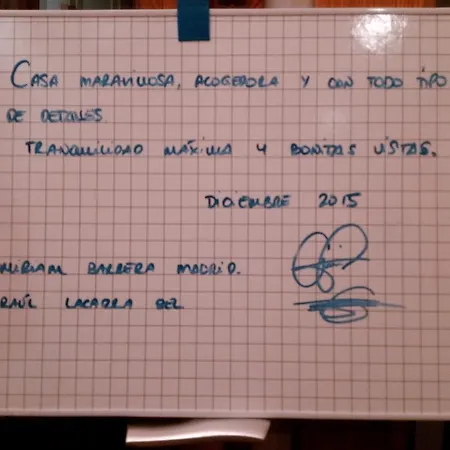 CASA MARAVILLOSA, ACOGEDORA Y CON TODO TIPO
DE DETALLES
TRANQUILIDAD MÁXIMA Y BONITAS VISTAS.
DICIEMBRE 2015
MIRIAM BARRERA MADRID.
RAÚL LACARRA